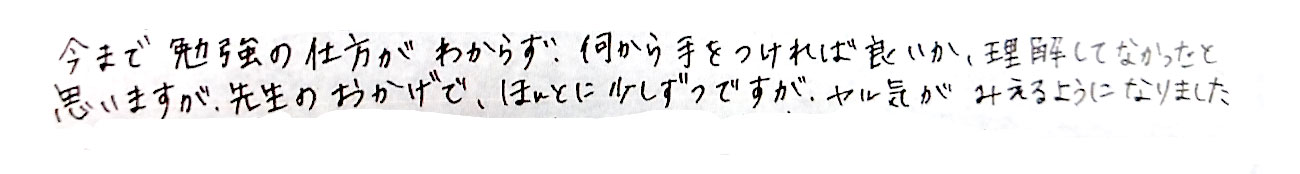 今まで勉強の仕方がわからず、何から手をつければ良いか、理解してなかったと
思いますが、先生のおかげで、ほんとに少しずつですが、ヤル気がみえるようになりました